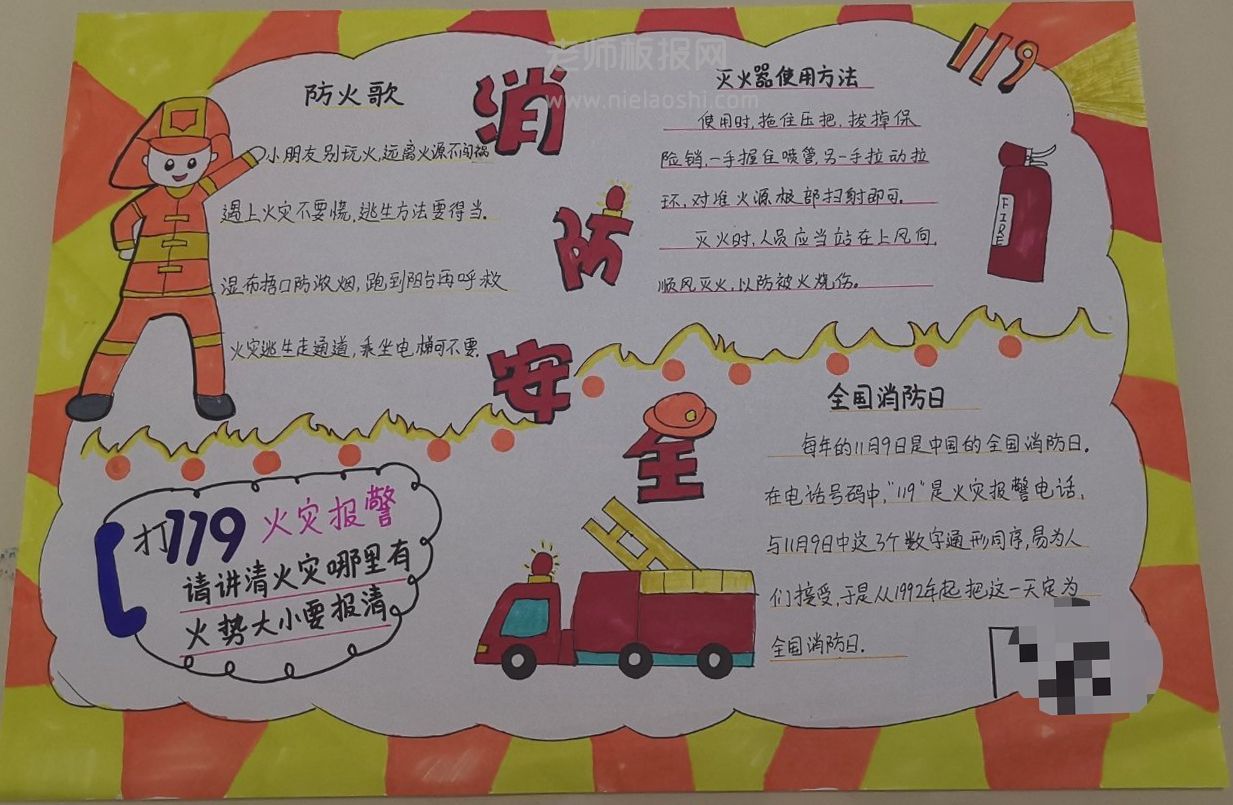 老师板报网
www.nielaoshi.com
消防安全
119
防火歌
小朋友别玩火,远离火源不闯祸
遇上火灾不要慌,逃生方法要得当.
湿布捂口防浓烟,跑到阳台再呼救
火灾逃生走通道,乘坐电梯可不要.
灭火器使用方法
使用时,拖住压把,拔掉保
险销,一手握住喷管,另一手拉动拉
环,对准火源根部扫射即可.
灭火时,人员应当站在上风向,
顺风灭火,以防被火烧伤。
FIRE
全国消防日
每年的11月9日是中国的全国消防日.
在电话号码中,"119"是火灾报警电话,
与11月9日中这3个数字通形同序,易为人
们接受,于是从1992年起把这一天定为
全国消防日.
打119火灾报警
请讲清火灾哪里有
火势大小要报清